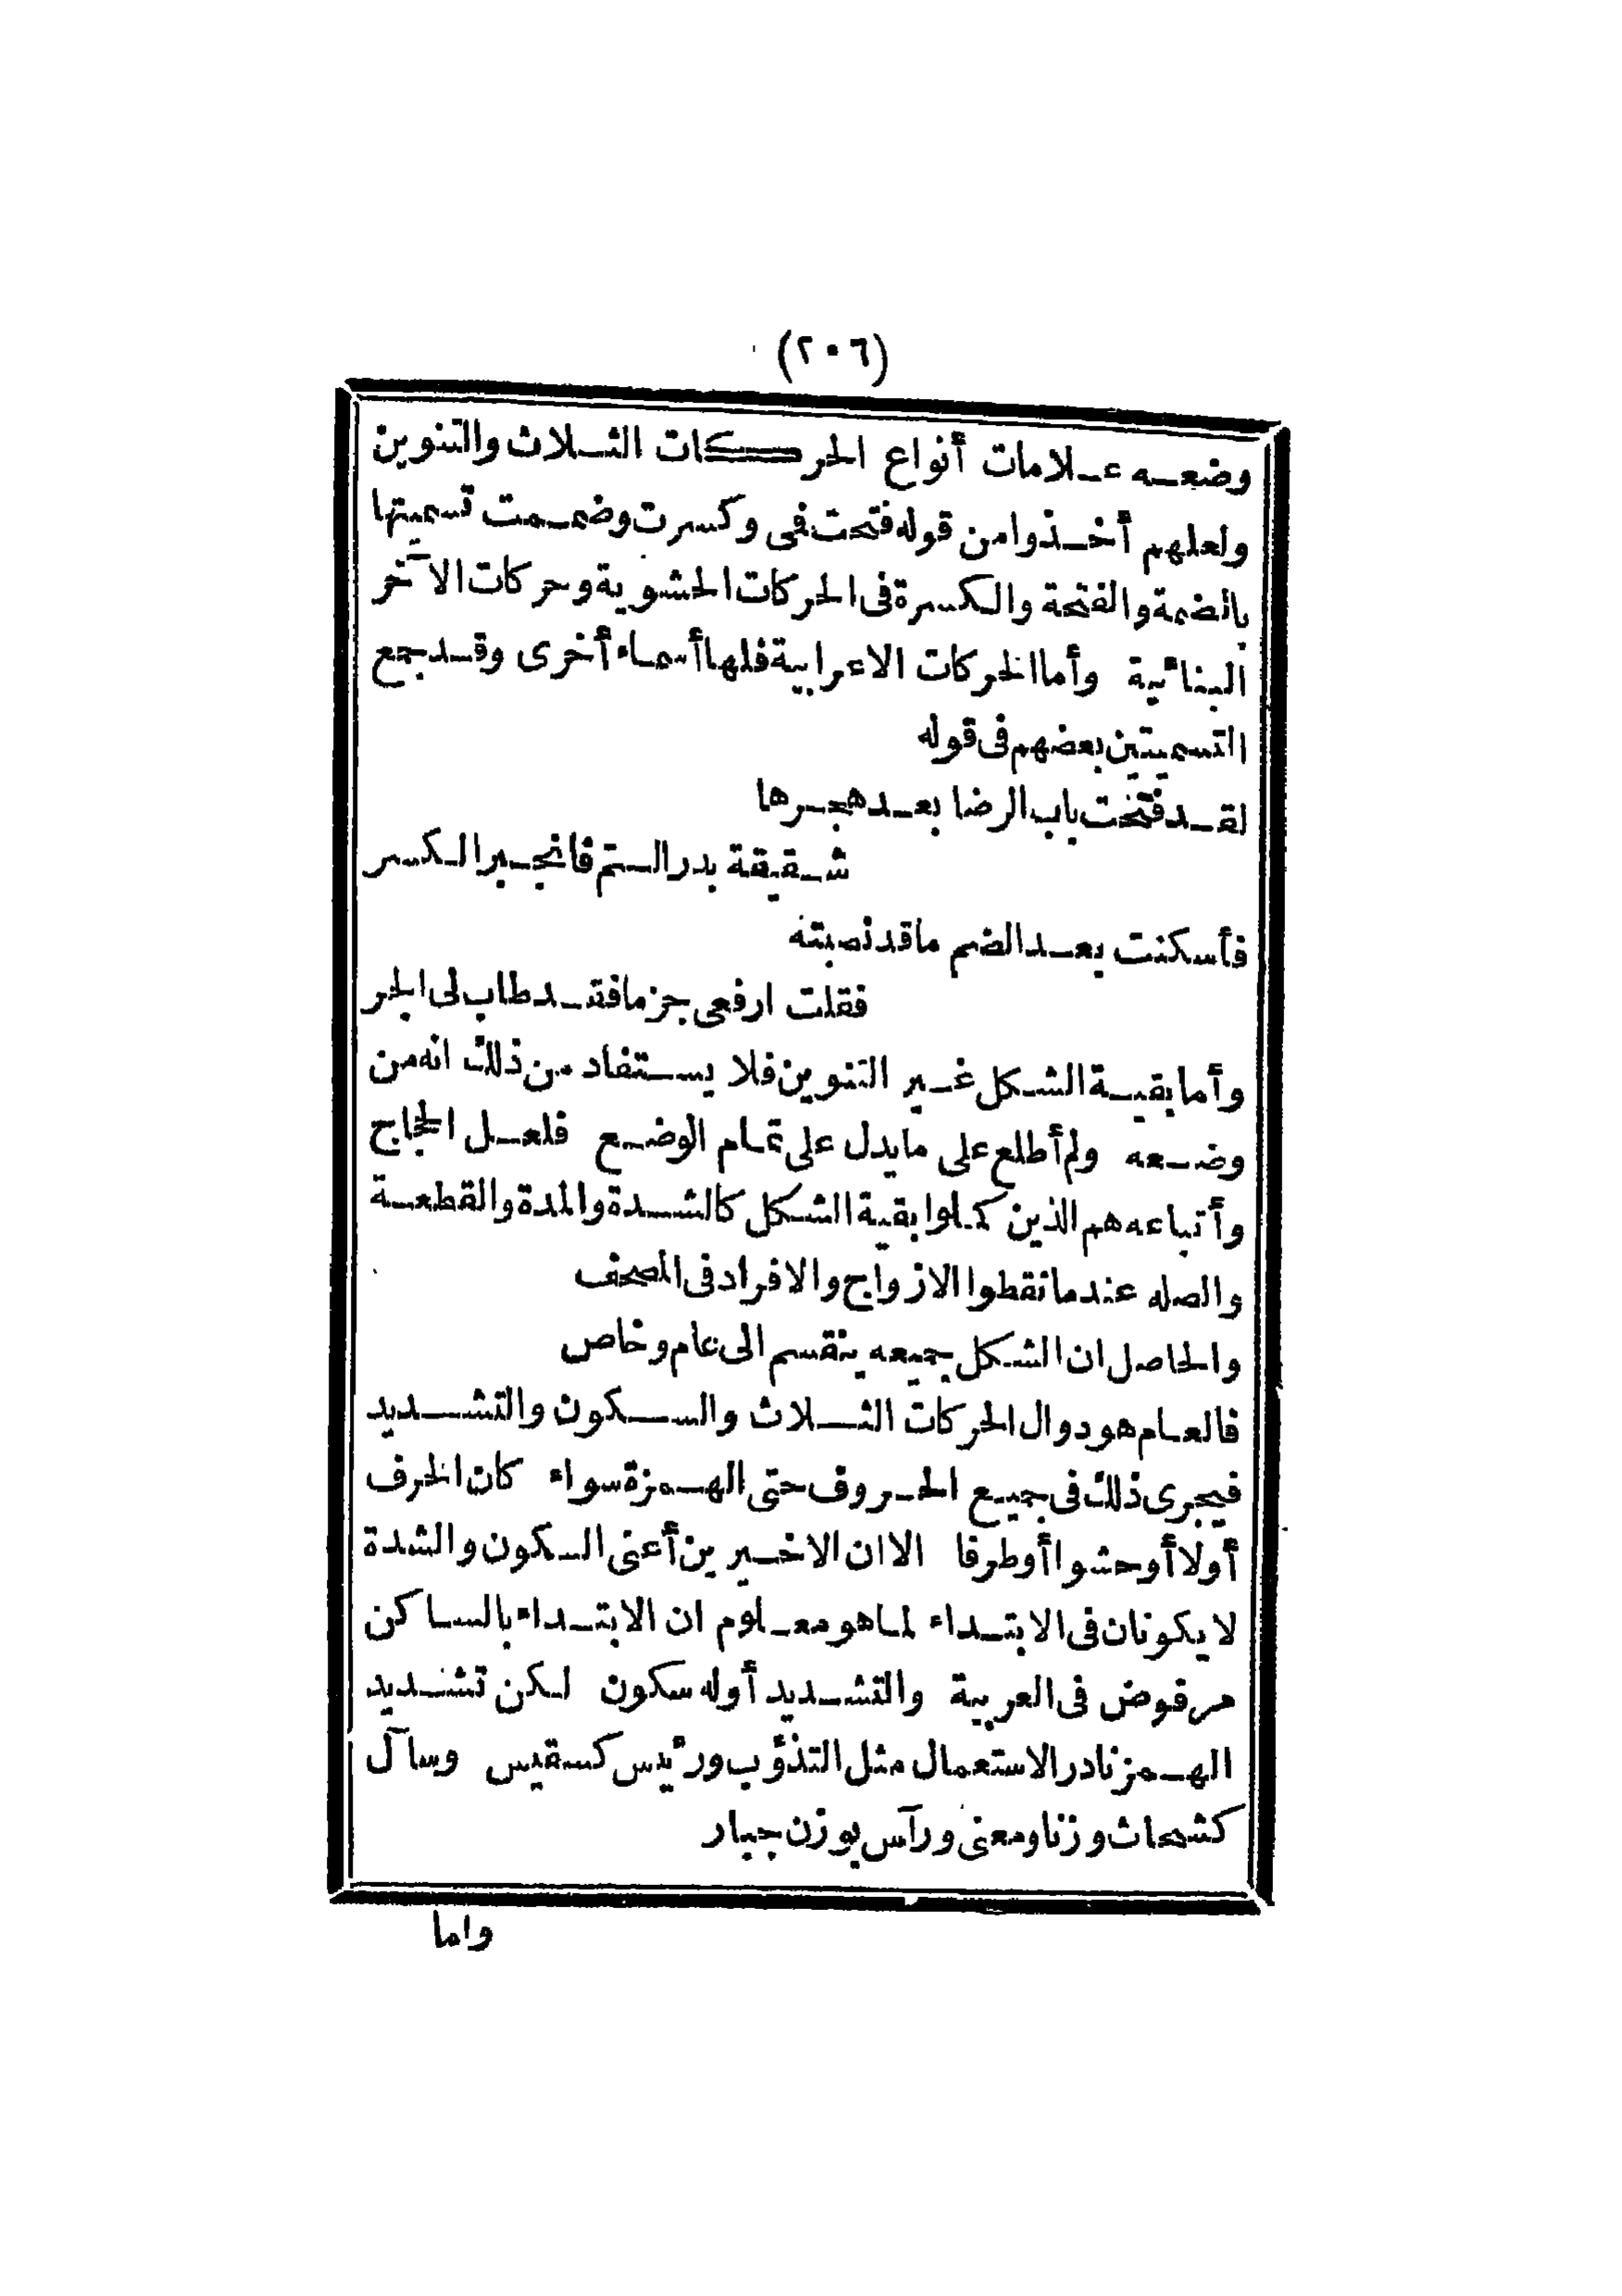 (٢٠٦)
وضعه علامات أنواع الحركات الثلاث والتنوين
ولعلهم أخذوا من قوله فتحت فى وكسرت وضممت تسميتها
بالضمة والفتحة والكسرة فى الحركات الحشوية وحركات الآخر
البنائية وأما الحركات الاعرابية فلها أسماء أخرى وقد جمع
التسميتين بعضهم فى قوله
لقد فتحت باب الرضا بعد هجرها
شقيقة بدر التم فانجبر الكسر
فأسكنت بعد الضم ما قد نصبته
فقلت ارفعى جزما فقد طاب لى الجر
وأما بقية الشكل غير التنوين فلا يستفاد من ذلك انه من
وضعه ولم أطلع على ما يدل على تمام الوضع فلعل الحجاج
وأتباعه هم الذين كملوا بقية الشكل كالشدة والمدة والقطعة
والصله عند ما نقطوا الازواج والافراد فى المصحف
والحاصل ان الشكل جميعه ينقسم الى عام وخاص
فالعام هو دوال الحركات الثلاث والسكون والتشديد
فيجرى ذلك فى جميع الحروف حتى الهمزة سواء كان الحرف
أولا أو حشوا أو طرفا الا ان الاخيرين أعنى السكون والشدة
لا يكونان فى الابتداء لما هو معلوم ان الابتداء بالساكن
مرفوض فى العربية والتشديد أوله سكون لكن تشديد
الهمز نادر الاستعمال مثل التذؤب ورئيس كسقيس وسآل
كشحاث وزنا ومعنى ورآس بوزن جبار
واما